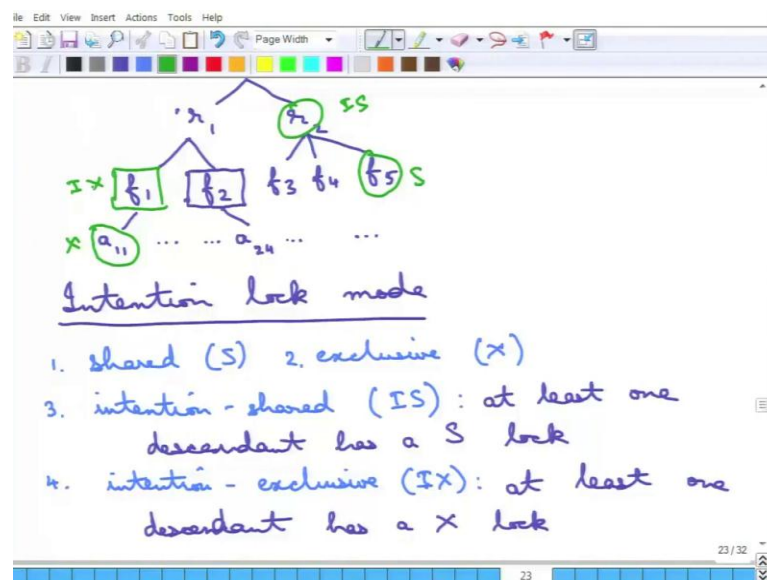 ile Edit View Insert Actions Tools Help
Page Width
B I
r₁ r₂ IS
IX f₁ f₂ f₃ f₄ f₅ S
X a₁₁ ... ... a₂₄ ... ...
Intention lock mode
1. shared (S) 2. exclusive (X)
3. intention - shared (IS) : at least one
descendant has a S lock
4. intention - exclusive (IX) : at least one
descendant has a X lock
23/32
23